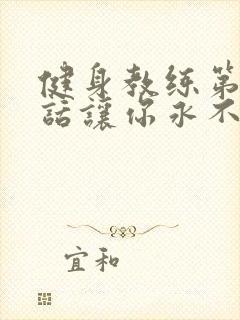 健身教练第
話讓你永不
宜和